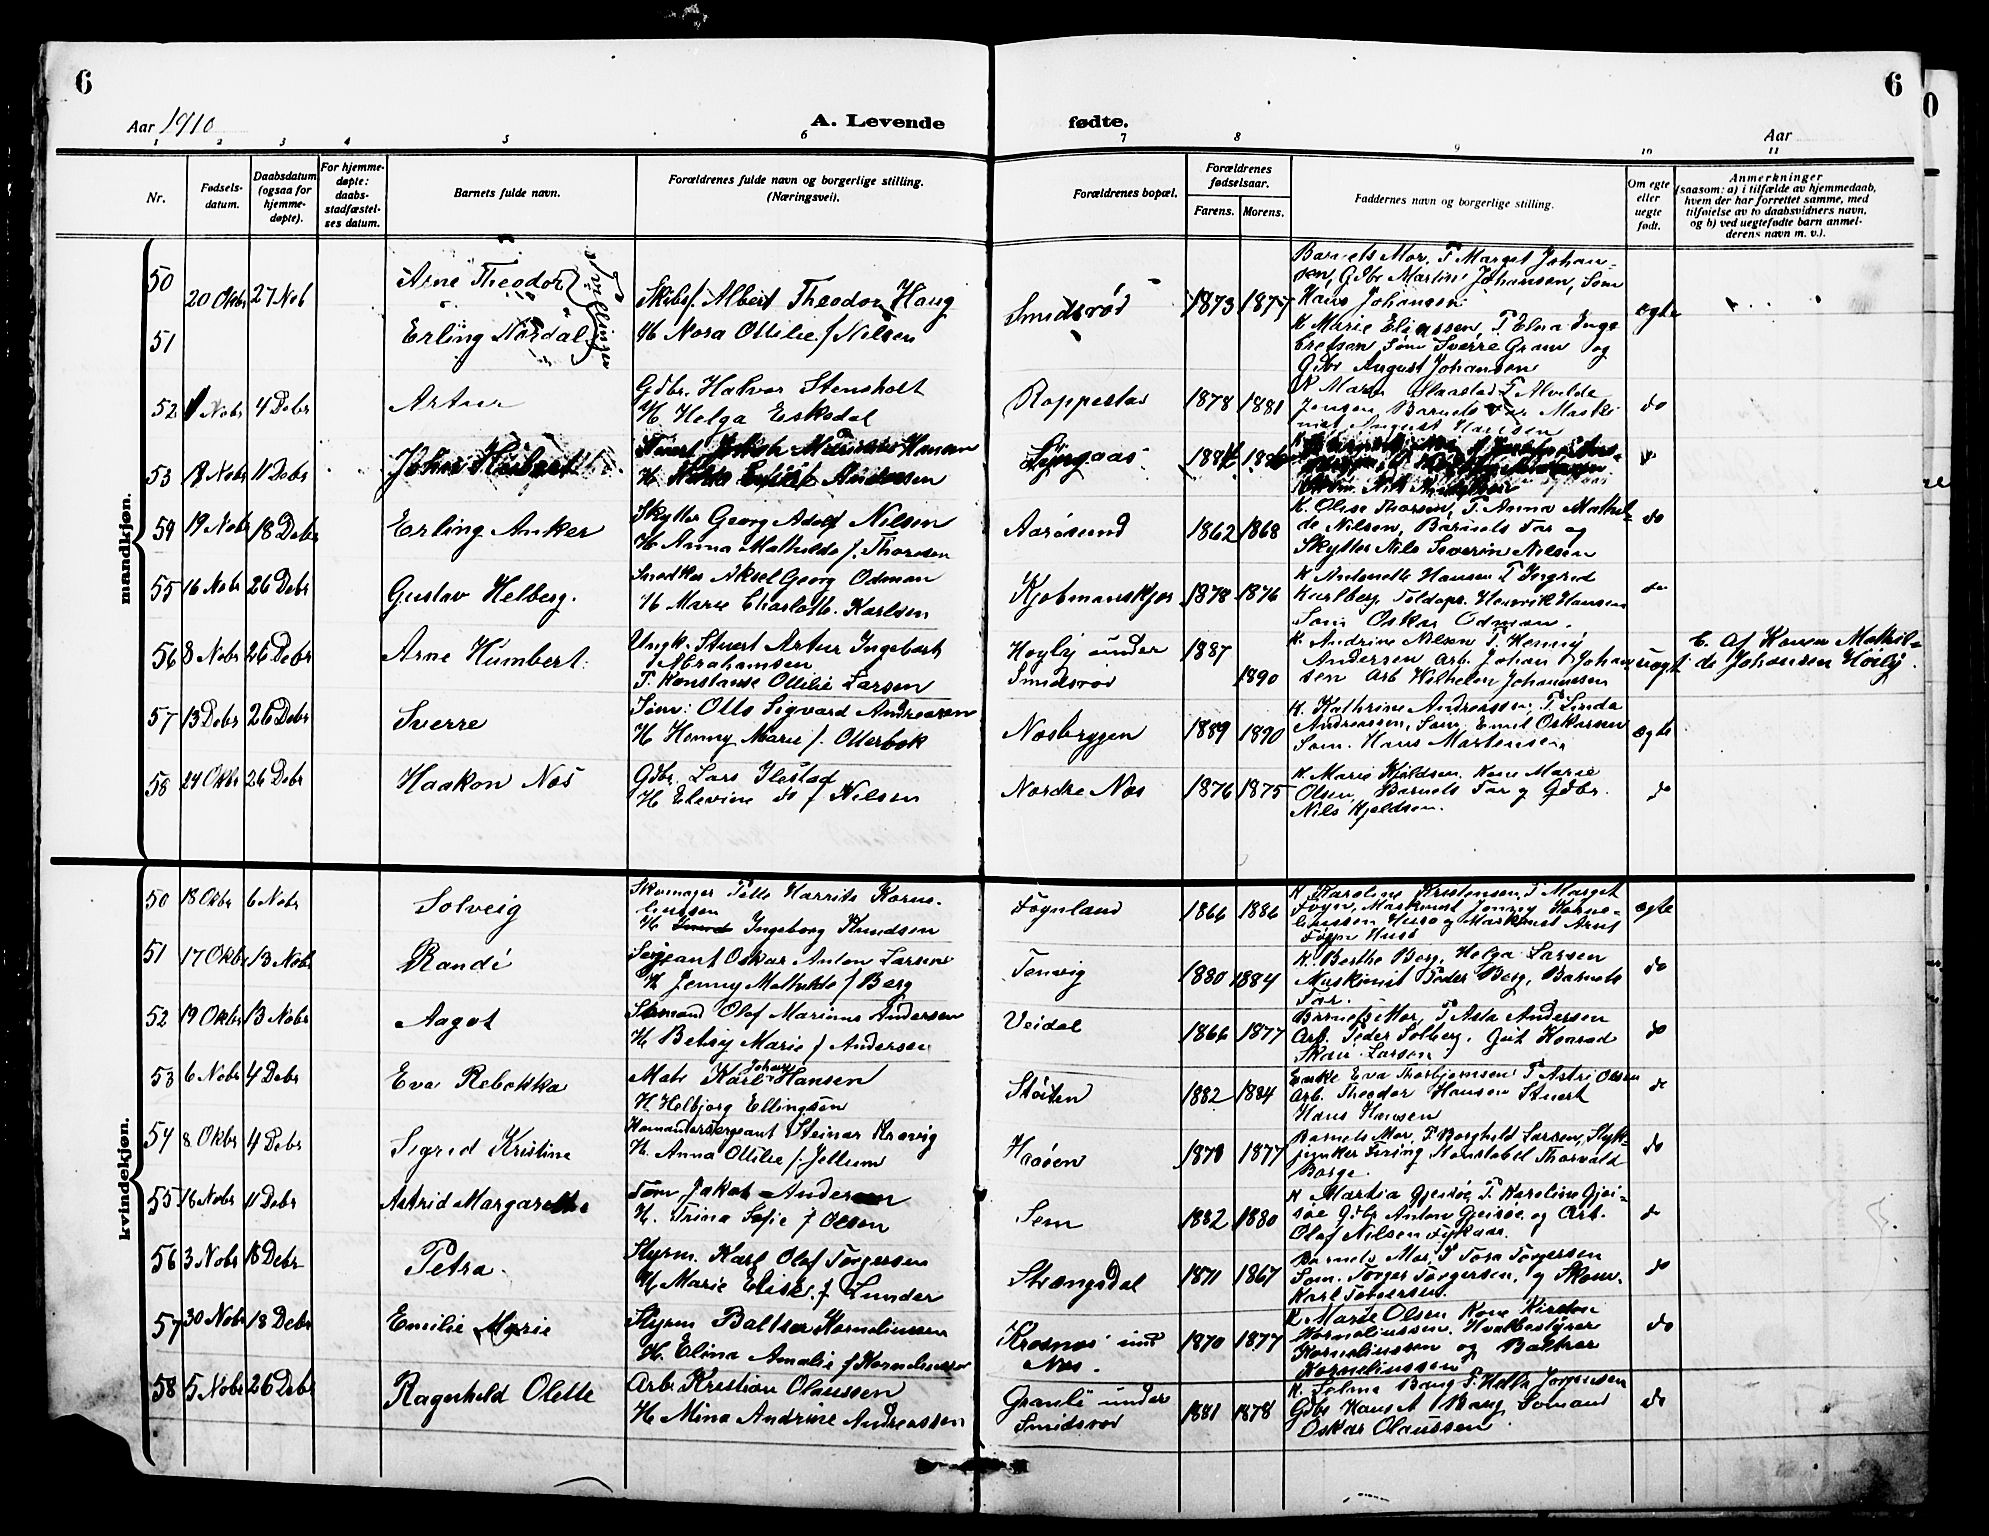 6
6
Aar 1910
A. Levende
fødte.
Aar
1 2 3 4 5 6 7 8 9 10 11
Nr.
Fødsels-
datum.
Daabsdatum
(ogsaa for
hjemme-
døpte).
For hjemme-
døpte:
daabs-
stadfæstel-
ses datum.
Barnets fulde navn.
Forældrenes fulde navn og borgerlige stilling.
(Næringsvei).
Forældrenes bopæl.
Forældrenes
fødselsaar.
Farens. Morens.
Faddernes navn og borgerlige stilling.
Om egte
eller
uegte
født.
Anmerkninger
(saasom: a) i tilfælde av hjemmedaab,
hvem der har forrettet samme, med
tilføielse av to daabsvidners navn,
og b) ved uegtefødte barn anmel-
derens navn m. v.).
mandkjøn.
50
20 Oktbr 27 Nob
Arne Theodor
Tvillinger
51
Erling Nordal
Skibsf. Albert Theodor Haug
H Nora Ottilie f Nilsen
Smidsrød
1873 1877
Barnets Mor, P Marget Johan-
sen, Gdbr Martin Johansen, Søm
Hans Johansen
K Marie Eliassen, P Elna Inge
bretsen Søm Sverre Gram og
Gdbr August Johansen
egte
52 1 Nobr 4 Debr
Artur
Gdbr. Halvor Stensholt
H Helga Eskedal
Roppestad
1878 1881
Jensen Barnets Far Maski
nist August Hansen
do
53 18 Nobr 11 Debr
H Andersen
59 19 Nobr 18 Debr
Erling Anker
Skytter Georg Adolf Nilsen
H Anna Mathilde f. Thorsen
Aarøsund
1862 1868
K. Olise Thorsen, P. Anna Mathil-
de Nilsen, Barnets Far og
Skytter Nils Severin Nilsen
do
55 16 Nobr 26 Debr
Gustav Helberg.
Snedker Aksel Georg Ødman
H Marie Charlotte Karlsen
Kjøbmanskjær
1878 1876
K Antonette Hansen P Ingrid
Karlberg Toldopr. Henrik Hansen
Søm Oskar Ødman.
do
56 8 Nobr 26 Debr
Arne Humbert.
Ungk. Stuert Artur Ingebart
Abrahamsen
P. Konstanse Ottilie Larsen
Høyly under
Smidsrød
1887
1890
K. Andrine Nilsen P Henny
Andersen Arb. Johan Johan
sen Arb Wilhelm Johannssen
uegte
Af Konen Mathil-
de Johansen Høily.
57 13 Debr 26 Debr
Sverre
Søm: Otto Sigvard Andreasen
H Henny Marie f. Otterbek
Nesbryggen
1889 1890
K. Kathrine Andreassen, P. Linda
Andreassen, Søm. Emil Oskarsen
Søm. Hans Martensen
egte
58 24 Oktbr 26 Debr
Haakon Nes
Gdbr. Lars Ilestad
H Elevine do f Nilsen
Nordre Nes
1876 1875
K. Marie Kjeldsen. Kone Marie
Olsen, Barnets Far og Gdbr.
Nils Kjeldsen.
do
kvindekjøn.
50 18 Oktbr 6 Nobr
Solveig
Skomager Pelle Harrits Korne-
liussen
H Ingeborg Knudsen
Føynland
1866 1886
K Karoline Kristensen, P. Marget
Føyn, Maskinist Jonny Korne-
liussen Husø og Maskinist Arnt
Føyn Husø
egte
51 17 Oktbr 13 Nobr
Randi
Sergeant Oskar Anton Larsen
H Jenny Mathilde f Berg
Tenvig
1880 1884
K. Berthe Berg, Helga Larsen
Maskinist Peder Berg, Barnets
Far.
do
52 19 Oktbr 13 Nobr
Aagot
Sømand Olaf Marinus Andersen
H Betsy Marie f Andersen
Veidal
1866 1877
Barnets Mor, P. Asta Andersen
Arb. Peder Solberg, Gut Konrad
Skau Larsen
do
53 6 Nobr 4 Debr
Eva Rebekka
Matr Karl Johan Hansen
H. Helbjørg Ellingsen
Støiten
1882 1884
Enke Eva Thorbjørnsen P Astri Olsen
Arb. Theodor Hansen Stuert
Hans Hansen
do
54 8 Oktbr 4 Debr
Sigrid Kristine
Komandersergeant Steinar Krevig
H. Anna Ottilie f. Jellum
Haaøen
1870 1877
Barnets Mor, P Borghild Larsen, Styk-
junker Fering Konstabel Thorvald
Borge.
do
55 16 Nobr 11 Debr
Astrid Margarethe
Tøm Jakob Andersen
H. Trina Sofie f Olsen
Sem
1882 1880
K Martia Gjeisøe, P. Karoline Gjei-
søe Gdbr Anton Gjeisøe og Arb.
Olaf Nilsen
do
56 3 Nobr 18 Debr
Petra.
Styrm. Karl Olaf Torgersen
H Marie Elise f Lunder
Strængsdal
1871 1867
Barnets Mor, P Tora Torgersen
Søm. Torger Torgersen, og Skom.
Karl Torgersen.
do
57 30 Nobr 18 Debr
Emilie Marie
Styrm Baltser Korneliussen
H. Elina Amalie f Korneliussen
Krosnes und
Nes.
1870 1877
K Marte Olsen Kone Kirsten
Korneliussen. Hvalbestyrer
Korneliussen og Baltser
Korneliussen
do
58 5 Nobr 26 Debr
Ragnhild Olette
Arb. Kristian Olaussen
H Mina Andrine Andreassen
Granli under
Smidsrød
1881 1878
K. Selma Berg P. Jørgensen
Gdbr Berg Sømand
Oskar Olaussen
do